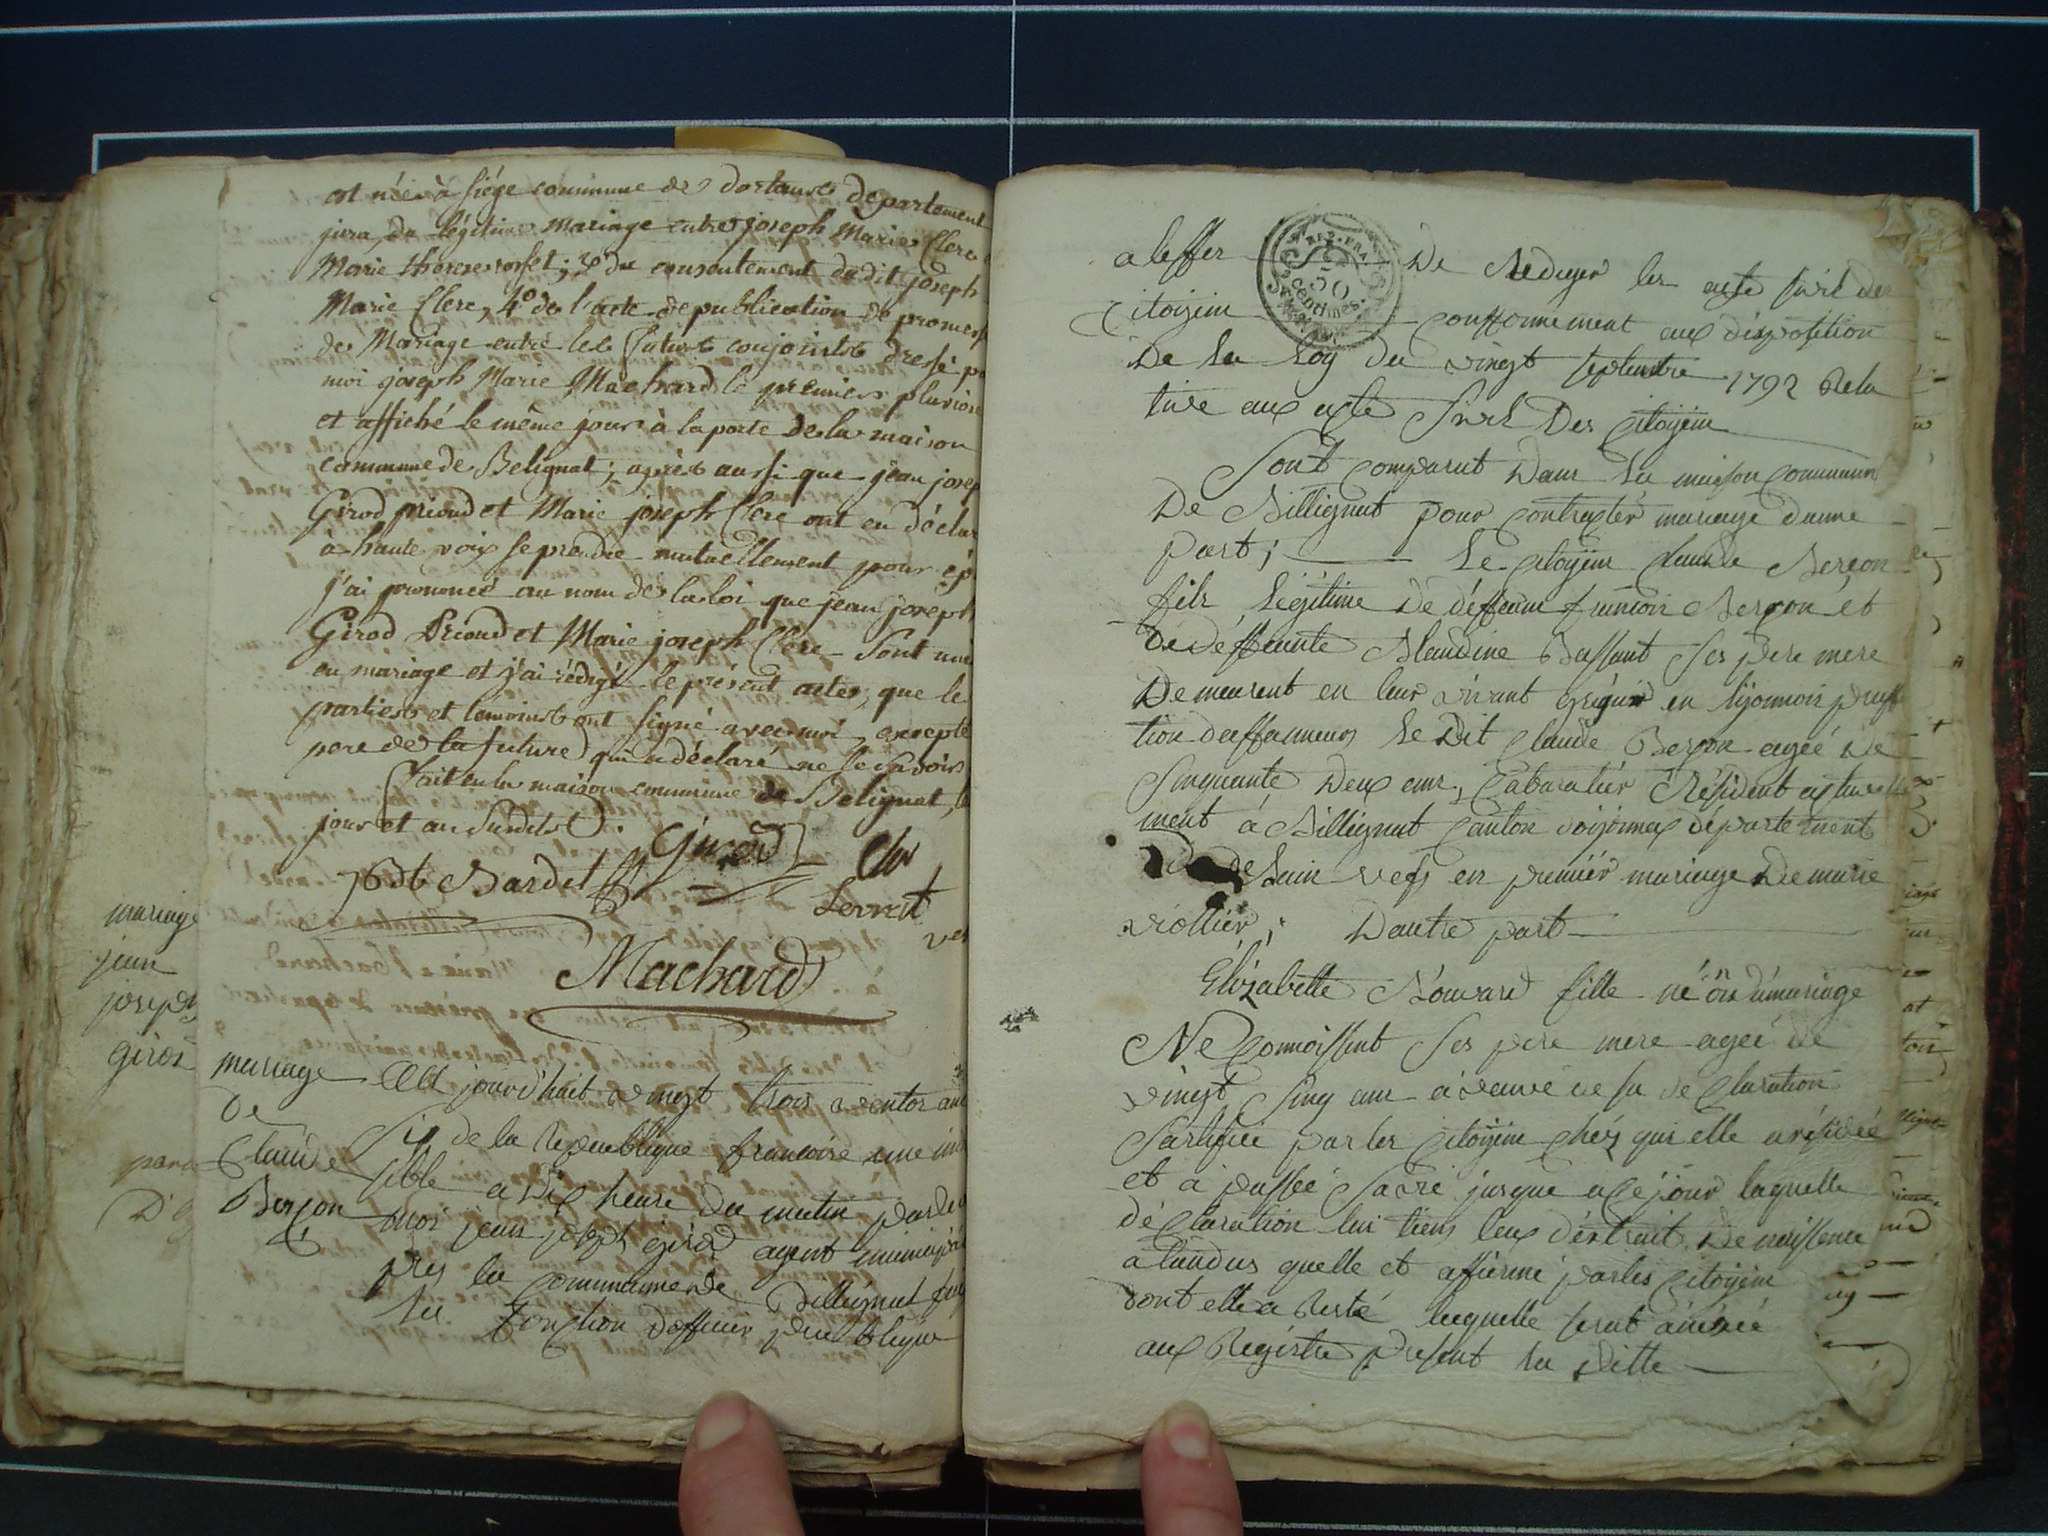 est née à siége commune de dortans departement
jura, du légitime Mariage entre joseph Marie Clerc
Marie therese rosset; 3º du consentement dudit joseph
Marie Clerc, 4º de l'acte de publication de promess
de Mariage entre les futurs conjoints dressé pa
moi joseph Marie Machard le premier pluviose
et affiché le même jour à la porte de la maison
commune de Belignat; après aussi que jean josep
Girod priond et Marie joseph Clerc ont eu déclar
à haute voix se prendre mutuellement pour ép
j'ai prononcé au nom de la loi que jean joseph
Girod Priond et Marie joseph Clerc sont uni
en mariage et j'ai rédigé le présent acte, que le
parties et temoins ont signé avec moi, excepté
pere de la future qui a déclaré ne le savoir
fait en la maison commune de Belignat, le
jour et an susdits.
Girod
Bardet
Machard
mariage
jean
joseph
girod
mariage
de
Claude
Berzon
Aujourd'huit vingt trois ventos an
six de la Republique francoise une indi
sible a dix heure du matin parde
moi jean joseph girod agent municipa
pres la commune de Billignat fai
la fonction d'officier publique
REP. FRA.
50
centimes.
a leffet De Rediger les acte sivil des
Citoyein conformement aux disposition
De la loy du vingt septembre 1792 Rela
tive aux acte sivil Des Citoyein
Sont comparut Dans la maison commune
De Billignat pour contracter mariage d'unne
part; Le Citoyein Claude Berzon
fils légitime De déffeunt francois Berzon et
de déffeunte Blandine Bassant ses pere mere
Demeurent en leur vivant grégnie en lijonnois
Le Dit Claude Berzon agée de
sinquante Deux ans, Cabaratiér Résident actuelle
ment á Billignat Canton doijonnax département
de Lain vefs en premiér mariage De marie
viollier; Dautre part
Elizabette Nouvard fille
Ne Connoissant ses pere mere agée de
vingt sinq ans de sa déclaration
sartifiée par les Citoyein chéz qui elle a résidée
et á passée sa vie jusque a ce jour laquelle
déclaration lui tiens leux déxtrait De naissence
atandus quelle et affiermé par les Citoyein
dont elle a Resté laquelle serat
aux Régistre présent La Ditte